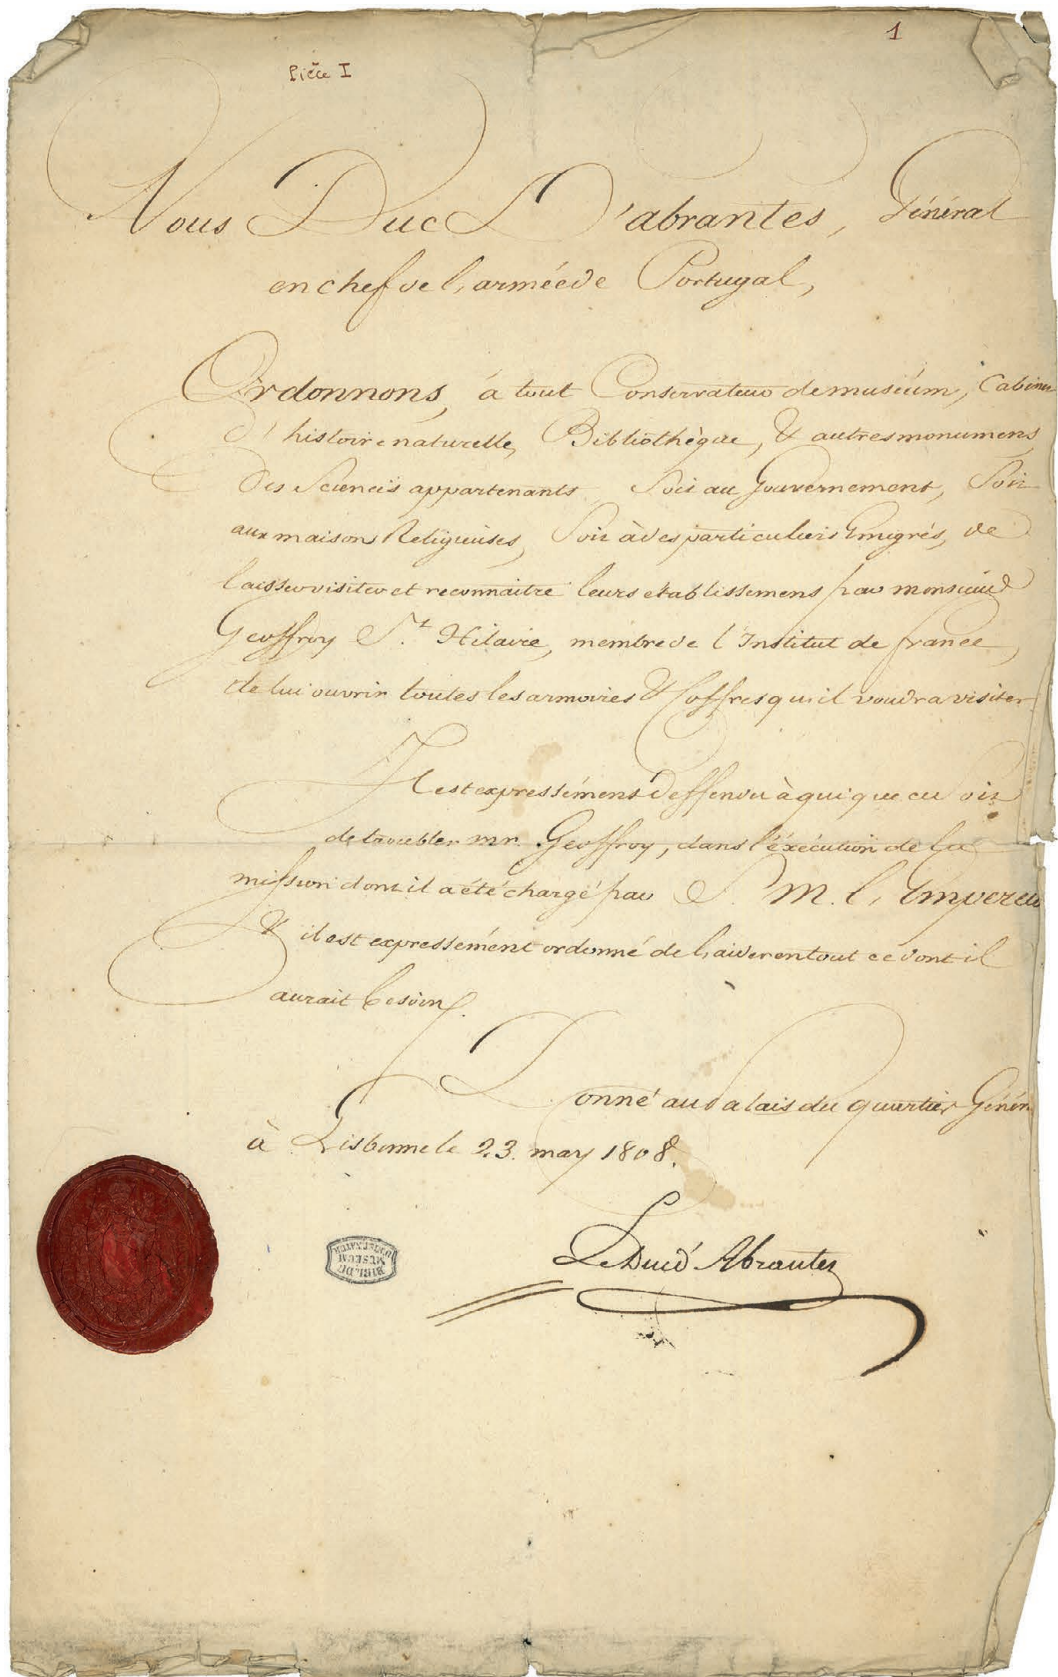 1
Pièce I
Nous Duc D'abrantes, Général
en chef de l'armée de Portugal,
Ordonnons, à tout Conservateur de muséum, Cabinet
d'histoire naturelle, Bibliothèque, & autres monumens
des Sciences appartenants Soit au Gouvernement, Soit
aux maisons Religieuses, Soit à des particuliers Emigrés, de
laisser visiter et reconnaitre leurs etablissemens par monsieur
Geoffroy St. Hilaire, membre de l'Institut de france,
de lui ouvrir toutes les armoires & Coffres qu'il voudra visiter
Il est expressément deffendu à qui que ce soit
de troubler mr. Geoffroy, dans l'éxécution de la
mission dont il a été chargé par S. M. l'Empereur
& il est expressément ordonné de l'aider en tout ce dont il
aurait besoin.
Donné au Palais du quartier Généra
à Lisbonne le 23. may 1808.
Le Duc d'Abrantes
BIBL. DU
MUSEUM
D'HIST. NATUR